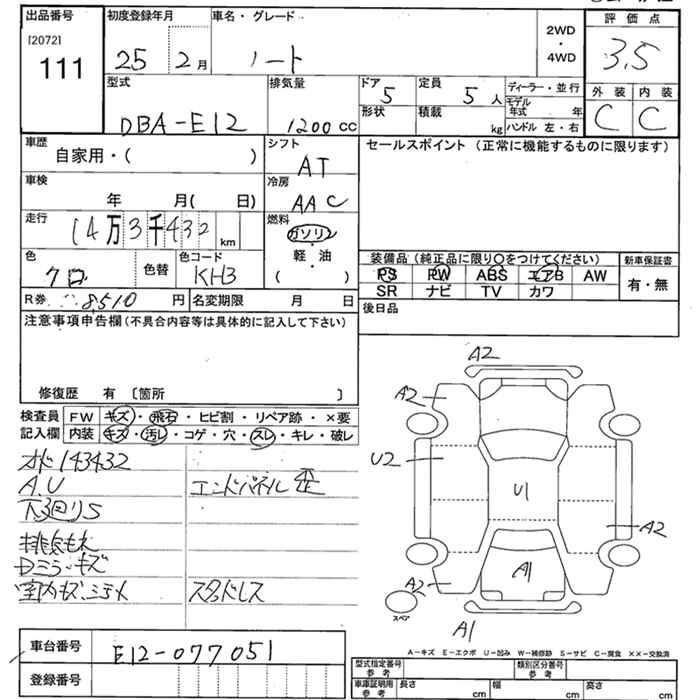 出品番号 初度登録年月 車名・グレード 評価点
[2072] 111 25年 2月 ノート 2WD・4WD 3.5
型式 排気量 ドア 5 定員 5人 ディーラー・並行 外装 内装
DBA-E12 1200cc 形状 積載 kg モデル年式 年 C C
ハンドル 左・右
車歴 自家用・( ) シフト AT セールスポイント (正常に機能するものに限ります)
車検 年 月( 日) 冷房 AAC
走行 14万3千432km 燃料 ガソリン・軽油 ( )
色 クロ 色替 色コード KH3
装備品 (純正品に限り○をつけてください) 新車保証書
PS PW ABS エアB AW 有・無
SR ナビ TV カワ
R券 8,510円 名変期限 月 日 後日品
注意事項申告欄(不具合内容等は具体的に記入して下さい)
修復歴 有 〔箇所 〕
検査員 FW キズ・飛石・ヒビ割・リペア跡・×要
記入欄 内装 キズ・汚レ・コゲ・穴・スレ・キレ・破レ
オド143432
A.U エンドパネル歪
下廻りS
Dミラーキズ
室内キズ、シミ スタドレス
A2
A2
U2
U1
A2
A1
A2
A1
スペア
A-キズ E-エクボ U-凹み W-補修跡 S-サビ C-腐食 ××-交換済
車台番号 E12-077051
登録番号
型式指定番号 参考 類別区分番号 参考
車庫証明用 参考 長さ cm 幅 cm 高さ cm